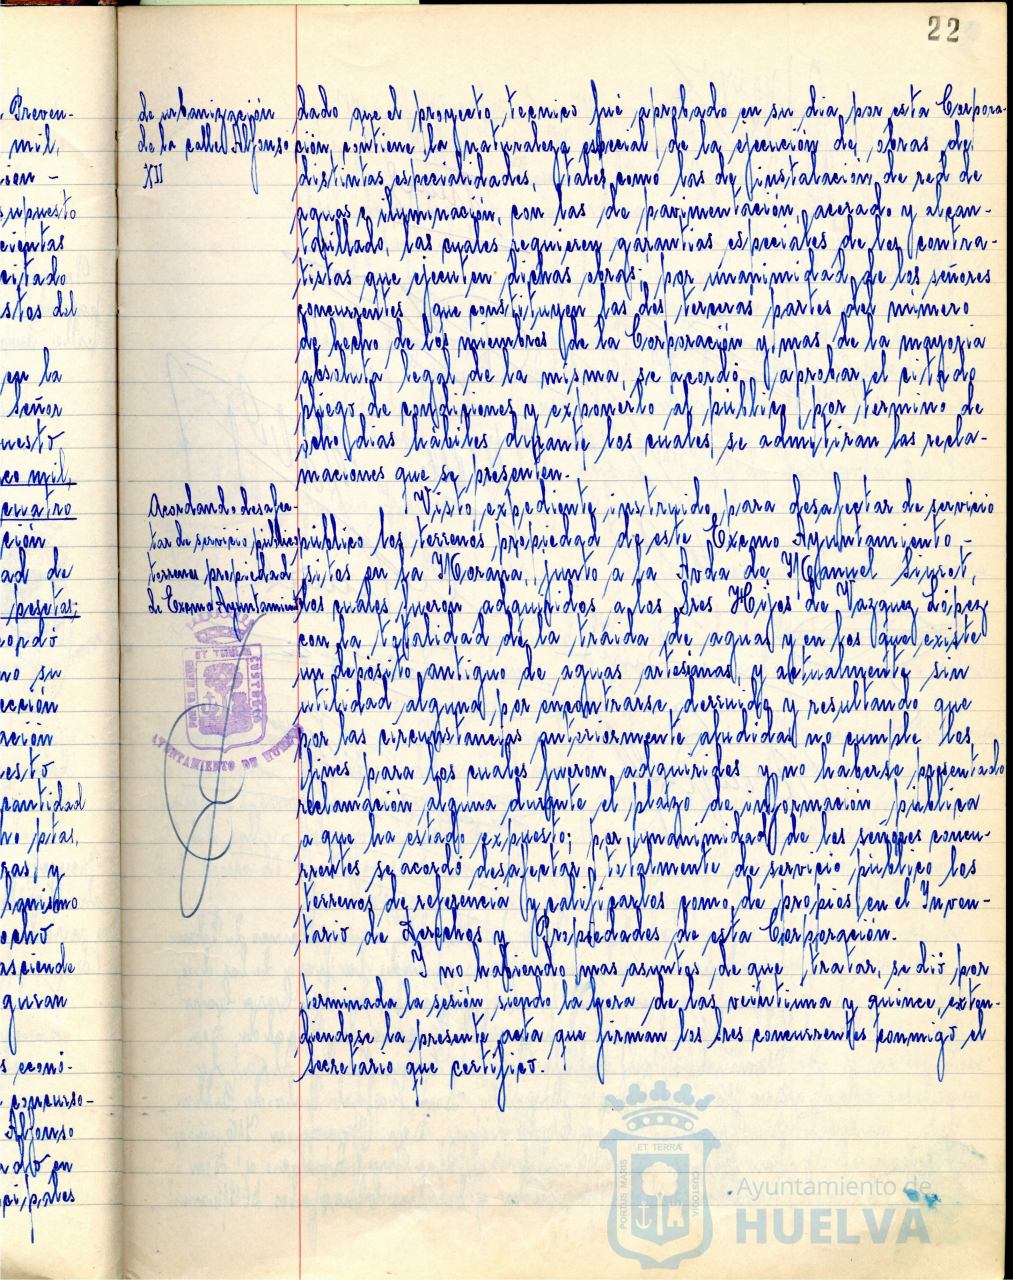 22
Preven-
mil,
supuesto
citado
en la
Señor
cuatro
ción
ad de
pesetas;
no su
ección
cantidad
ptas,
ocho
asciende
econó-
concurso-
Alfonso
de urbanización
de la calle Alfonso
XII
dado que el proyecto tecnico fué aprobado en su dia por esta Corpora-
ción, contiene la naturaleza especial de la ejecución de obras de
distintas especialidades, tales como las de instalación de red de
aguas e iluminación, con las de pavimentación, acerado y alcan-
tarillado, las cuales requieren garantias especiales de los contra-
tistas que ejecuten dichas obras; por unanimidad de los señores
concurrentes que constituyen las dos terceras partes del número
de hecho de los miembros de la Corporación y mas de la mayoria
absoluta legal de la misma, se acordó aprobar el citado
pliego de condiciones y exponerlo al publico por termino de
ocho dias hábiles durante los cuales se admitiran las recla-
maciones que se presenten.
Acordando desafec-
tar de servicio público
terrenos propiedad
de Excmo Ayuntamiento
Visto expediente instruido para desafectar de servicio
público los terrenos propiedad de este Excmo Ayuntamiento -
sitos en La Morana, junto a la Avda de Manuel Siurot,
los cuales fueron adquiridos a los Sres Hijos de Vazquez López
con la totalidad de la traida de aguas y en los que existe
un depósito antiguo de aguas artesianas, y actualmente sin
utilidad alguna por encontrarse derruido y resultando que
por las circunstancias anteriormente aludidas no cumple los
fines para los cuales fueron adquiridos y no haberse presentado
reclamación alguna durante el plazo de información pública
a que ha estado expuesto; por unanimidad de los señores concu-
rrentes se acordó desafectar totalmente de servicio público los
terrenos de referencia y calificarlos como de propios en el Inven-
tario de Derechos y Propiedades de esta Corporación.
Y no habiendo mas asuntos de que tratar, se dió por
terminada la sesión siendo la hora de las veintiuna y quince, exten-
diendose la presente acta que firman los Sres concurrentes conmigo el
Secretario que certifico.
AYUNTAMIENTO DE HUELVA
PORTUS MARIS
ET TERRÆ
CUSTODIA
Ayuntamiento de
HUELVA